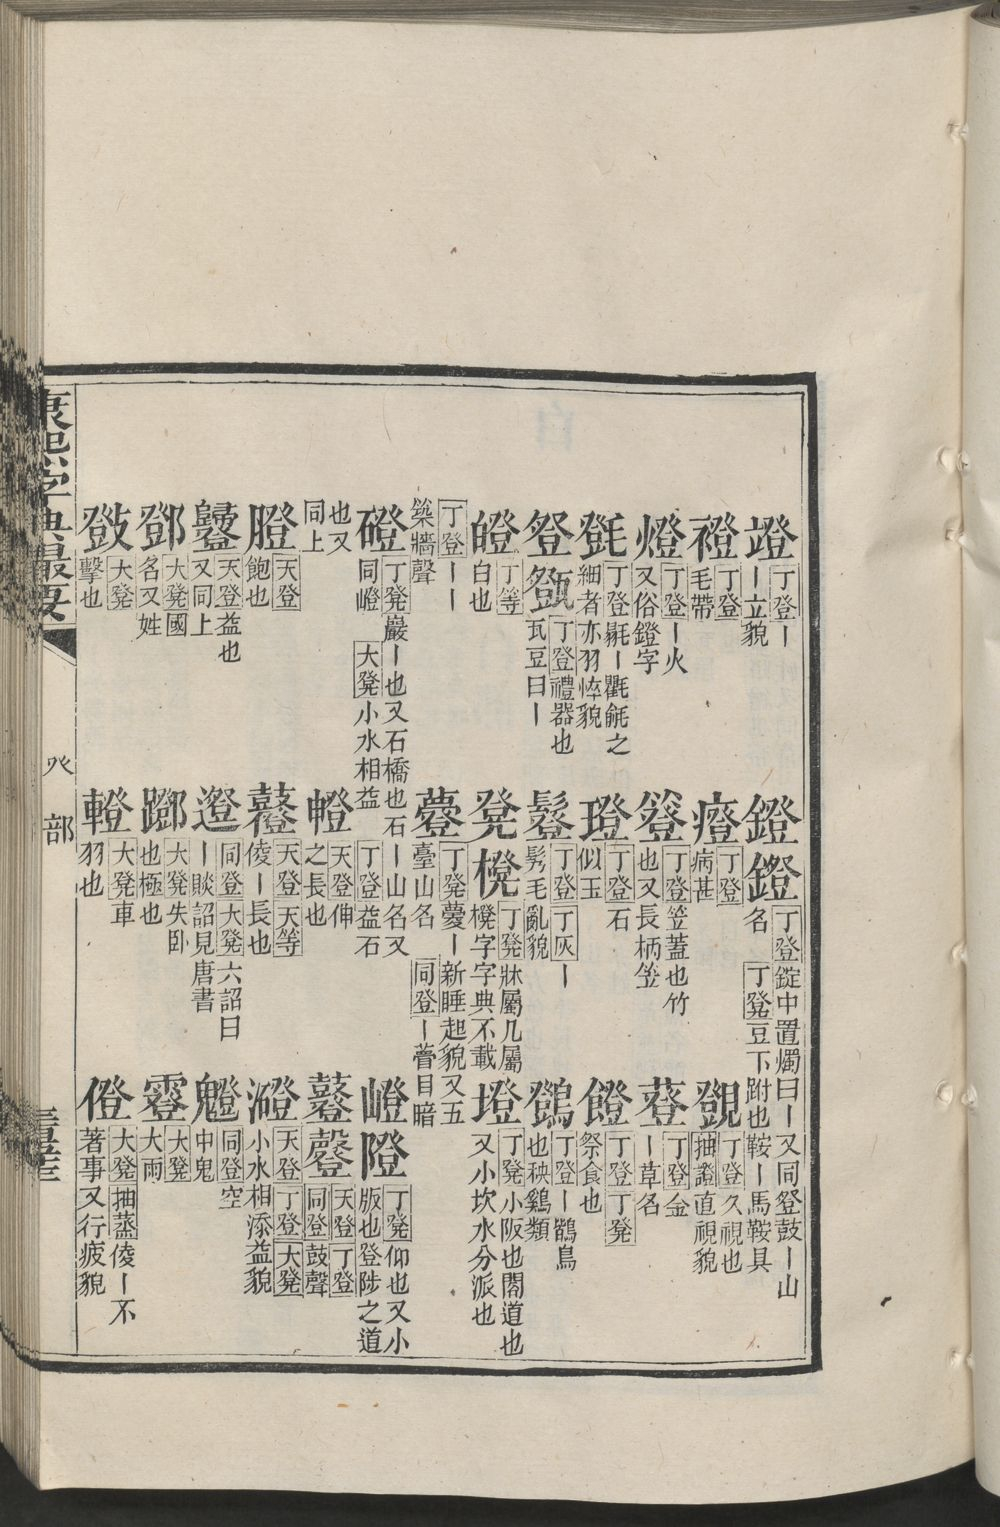 竳 丁登ー ー立貌 鐙鐙 丁登錠中置燭曰ー又同豋鼓ー山名 丁凳豆下跗也鞍ー馬鞍具
襘 丁登毛帶 癦 丁登病甚 覴 丁登久視也 抽證直視貌
燈 丁登ー火又俗鐙字 簦 丁登笠蓋也竹也又長柄笠 䔲 丁登金ー草名
㲪 丁登㲣ー氍毹之細者亦羽㷀貌 璒 丁登石似玉 饐 丁登 丁凳祭食也
豋㽅 丁登禮器也瓦豆曰ー 鬙 丁登 丁灰ー髣毛亂貌 鷄 丁登ー鶻鳥也秧鷄類
皘 丁等白也 凳櫈 丁凳牀屬几屬櫈字字典不載 墱 丁凳小阪也閣道也又小坎水分派也
丁登ーー築牆聲 䒏 丁凳薆ー新睡起貌又五臺山名 同登ー瞢目暗
磴 丁凳巖ー也又石橋也石ー山名又同嶝 大凳小水相益 丁登益石也又同上 嶝隥 丁凳仰也又小版也登陟之道
幐 天登伸之長也 鼟 天登 丁登 同登鼓聲
膯 天登飽也 䕨 天登 天等倰ー長也 澄 天登 丁登 大凳小水相添益貌
天登益也又同上 邆 同登 大凳六詔曰ー賧詔見唐書 同登空中鬼
鄧 大凳國名又姓 躑 大凳失卧也極也 霯 大凳大雨
㪱 大凳擊也 大凳車羽也 僜 大凳抽蒸倰ー不著事又行疲貌
康熙字典最要 癶部